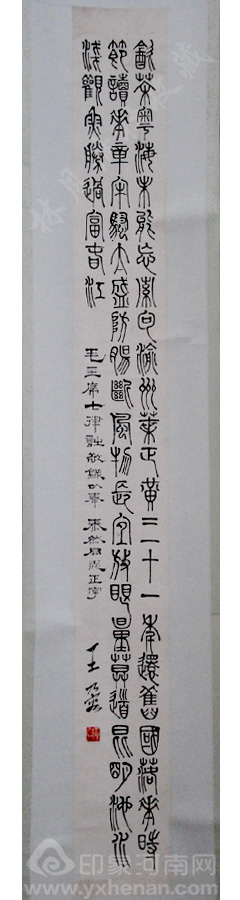 飲茶粵海未能忘索句渝州葉正黃三十一年還舊國落華時
節讀華章牢騷太盛防腸斷風物長宜放眼量莫道昆明池水
淺觀魚勝過富春江
毛主席七律 敬錄以奉 同志正字
王
印象河南网
www.yxhenan.com